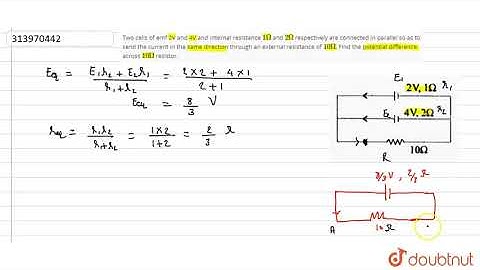 313970442
Two cells of emf 2V and 4V and internal resistance 1Ω and 2Ω respectively are connected in parallel so as to
send the current in the same direction through an external resistance of 10Ω. Find the potential difference
across 10Ω resistor.
Eq = E₁r₂ + E₂r₁ / r₁+r₂ = 2×2 + 4×1 / 2+1
Eeq = 8/3 V
req = r₁r₂ / r₁+r₂ = 1×2 / 1+2 = 2/3 Ω
E₁
2V, 1Ω r₁
E₂ 4V, 2Ω r₂
10Ω
R
8/3 V, 2/3 Ω
A 10Ω
doubtnut